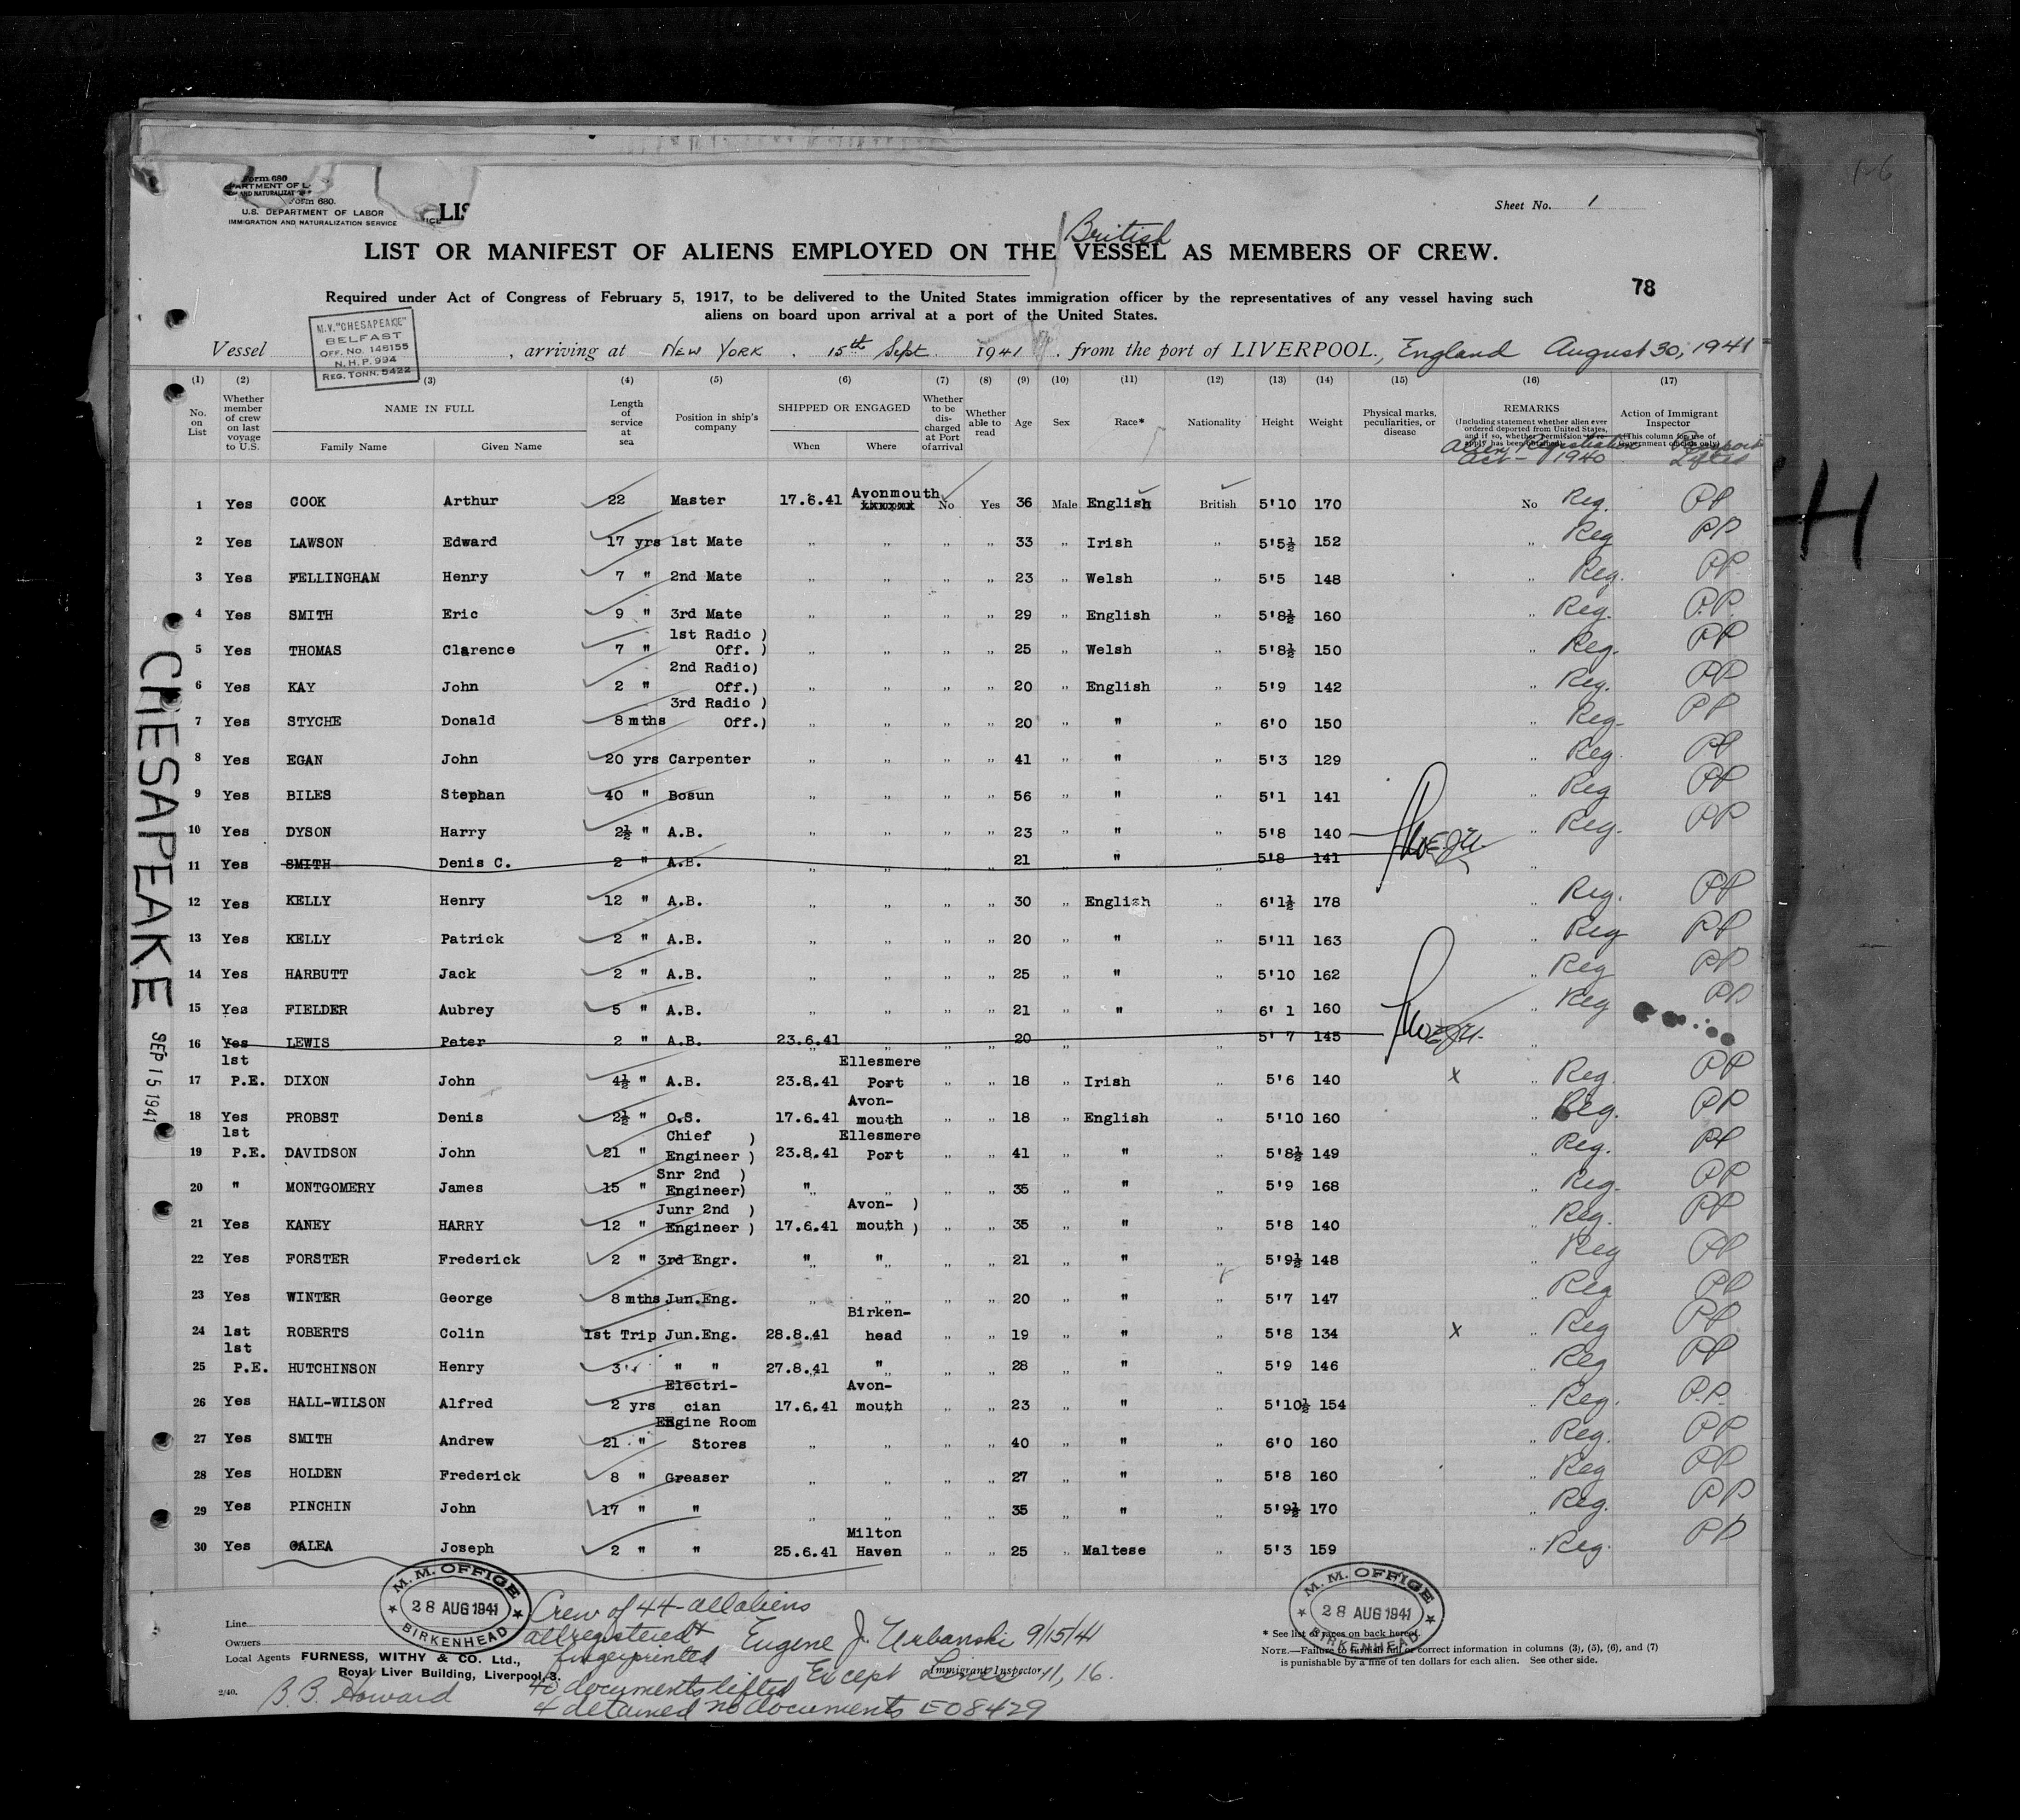 Form 680
U.S. DEPARTMENT OF LABOR
IMMIGRATION AND NATURALIZATION SERVICE
Sheet No. 1
British
LIST OR MANIFEST OF ALIENS EMPLOYED ON THE VESSEL AS MEMBERS OF CREW.
78
Required under Act of Congress of February 5, 1917, to be delivered to the United States immigration officer by the representatives of any vessel having such
aliens on board upon arrival at a port of the United States.
M.V. "CHESAPEAKE"
BELFAST
OFF. No. 148155
N.H.P. 994
REG. TONN. 5422
Vessel , arriving at NEW YORK, 15th Sept. 1941, from the port of LIVERPOOL., England August 30, 1941
(1) (2) (3) (4) (5) (6) (7) (8) (9) (10) (11) (12) (13) (14) (15) (16) (17)
No. on List
Whether member of crew on last voyage to U.S.
NAME IN FULL
Family Name Given Name
Length of service at sea
Position in ship's company
SHIPPED OR ENGAGED
When Where
Whether to be discharged at Port of arrival
Whether able to read
Age
Sex
Race*
Nationality
Height
Weight
Physical marks, peculiarities, or disease
REMARKS
(Including statement whether alien ever ordered deported from United States, and if so, whether permission to re-apply has been obtained)
Alien Registration Act - 1940
Action of Immigrant Inspector
(This column for use of Government officials only)
Passport Lifted
1 Yes COOK Arthur 22 Master 17.6.41 Avonmouth No Yes 36 Male English British 5'10 170 No Reg. PP
2 Yes LAWSON Edward 17 yrs 1st Mate " " " " 33 " Irish " 5'5½ 152 " Reg PP
3 Yes FELLINGHAM Henry 7 " 2nd Mate " " " " 23 " Welsh " 5'5 148 " Reg. PP
4 Yes SMITH Eric 9 " 3rd Mate " " " " 29 " English " 5'8½ 160 " Reg. P.P.
5 Yes THOMAS Clarence 7 " 1st Radio Off. ) " " " " 25 " Welsh " 5'8½ 150 " Reg. PP
6 Yes KAY John 2 " 2nd Radio) Off.) " " " " 20 " English " 5'9 142 " Reg. PP
7 Yes STYCHE Donald 8 mths 3rd Radio ) Off.) " " " " 20 " " " 6'0 150 " Reg. PP
8 Yes EGAN John 20 yrs Carpenter " " " " 41 " " " 5'3 129 " Reg. PP
9 Yes BILES Stephan 40 " Bosun " " " " 56 " " " 5'1 141 " Reg PP
10 Yes DYSON Harry 2½ " A.B. " " " " 23 " " " 5'8 140 " Reg. PP
11 Yes SMITH Denis C. 2 " A.B. " " " " 21 " " " 5'8 141 "
12 Yes KELLY Henry 12 " A.B. " " " " 30 " English " 6'1½ 178 " Reg. PP
13 Yes KELLY Patrick 2 " A.B. " " " " 20 " " " 5'11 163 " Reg PP
14 Yes HARBUTT Jack 2 " A.B. " " " " 25 " " " 5'10 162 " Reg PP
15 Yes FIELDER Aubrey 5 " A.B. " " " " 21 " " " 6'1 160 " Reg PP
16 Yes LEWIS Peter 2 " A.B. 23.6.41 " " " 20 " " 5'7 145 "
17 1st P.E. DIXON John 4½ " A.B. 23.8.41 Ellesmere Port " " 18 " Irish " 5'6 140 x " Reg. PP
18 Yes PROBST Denis 2½ " O.S. 17.6.41 Avon-mouth " " 18 " English " 5'10 160 " Reg. PP
19 1st P.E. DAVIDSON John 21 " Chief ) Engineer ) 23.8.41 Ellesmere Port " " 41 " " " 5'8½ 149 " Reg. PP
20 " MONTGOMERY James 15 " Snr 2nd ) Engineer) " " " " 35 " " " 5'9 168 " Reg. PP
21 Yes KANEY HARRY 12 " Junr 2nd ) Engineer ) 17.6.41 Avon- ) mouth ) " " 35 " " " 5'8 140 " Reg. PP
22 Yes FORSTER Frederick 2 " 3rd Engr. " " " " 21 " " " 5'9½ 148 " Reg PP
23 Yes WINTER George 8 mths Jun.Eng. " " " " 20 " " " 5'7 147 " Reg PP
24 1st ROBERTS Colin 1st Trip Jun.Eng. 28.8.41 Birken-head " " 19 " " " 5'8 134 x " Reg PP
25 1st P.E. HUTCHINSON Henry 3 " " " 27.8.41 " " " 28 " " " 5'9 146 " Reg PP
26 Yes HALL-WILSON Alfred 2 yrs Electri-cian 17.6.41 Avon-mouth " " 23 " " " 5'10½ 154 " Reg. P.P.
27 Yes SMITH Andrew 21 " Engine Room Stores " " " " 40 " " " 6'0 160 " Reg. PP
28 Yes HOLDEN Frederick 8 " Greaser " " " " 27 " " " 5'8 160 " Reg PP
29 Yes PINCHIN John 17 " " " " " " 35 " " " 5'9½ 170 " Reg. PP
30 Yes GALEA Joseph 2 " " 25.6.41 Milton Haven " " 25 " Maltese " 5'3 159 " Reg. PP
CHESAPEAKE
SEP 15 1941
H
M.M. OFFICE
28 AUG 1941
BIRKENHEAD
M.M. OFFICE
28 AUG 1941
BIRKENHEAD
Crew of 44 - all aliens
all registered &
fingerprinted
Eugene J. Urbanski 9/15/41
Immigrant Inspector
Except Lines 11, 16.
40 documents lifted
4 detained no documents E08429
Line
Owners
Local Agents FURNESS, WITHY & CO. Ltd.,
Royal Liver Building, Liverpool, 3.
2/40.
B.B. Howard
* See list of races on back hereof.
NOTE.—Failure to furnish full or correct information in columns (3), (5), (6), and (7)
is punishable by a fine of ten dollars for each alien. See other side.